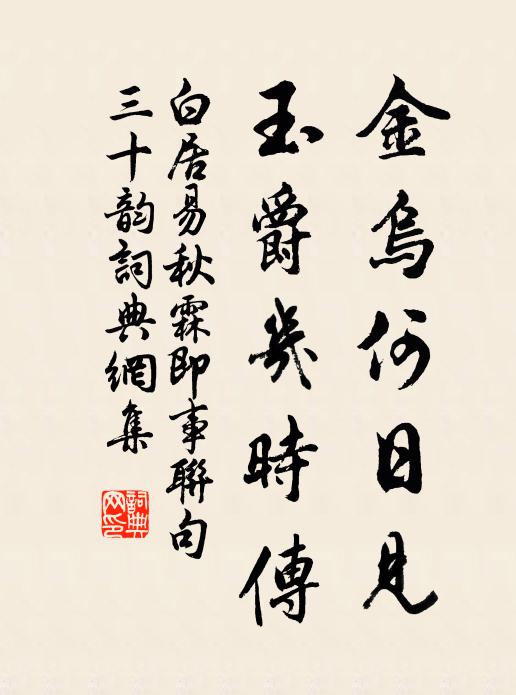 金烏何日見
玉爵幾時傳
白居易秋霖即事聯句
三十韵詞典網集
詞典
网印